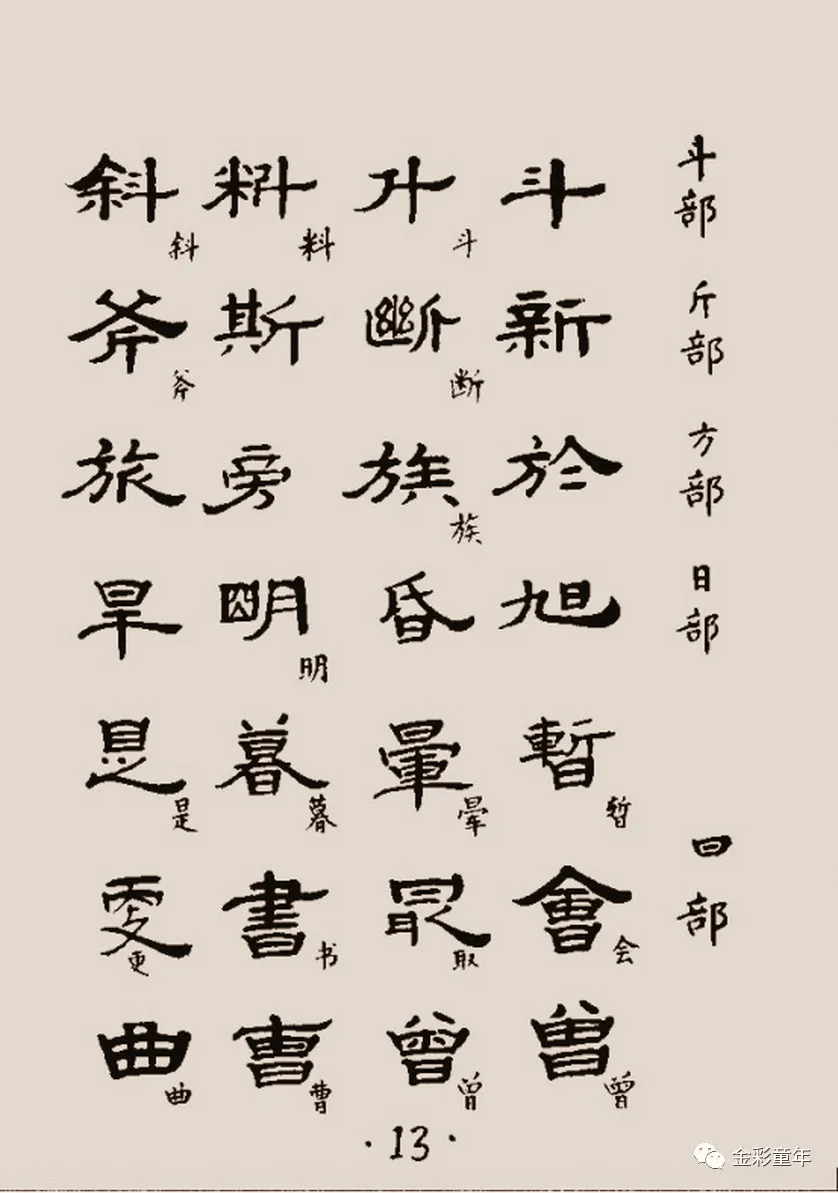 斗部
斗升料斜
斗料斜
斤部
新斷斯斧
断斧
方部
於族旁旅
族
日部
旭昏明旱
明
暫暈暮是
暂晕暮是
曰部
會最書更
会取书更
曾曾曹曲
曾曾曹曲
·13·
金彩童年